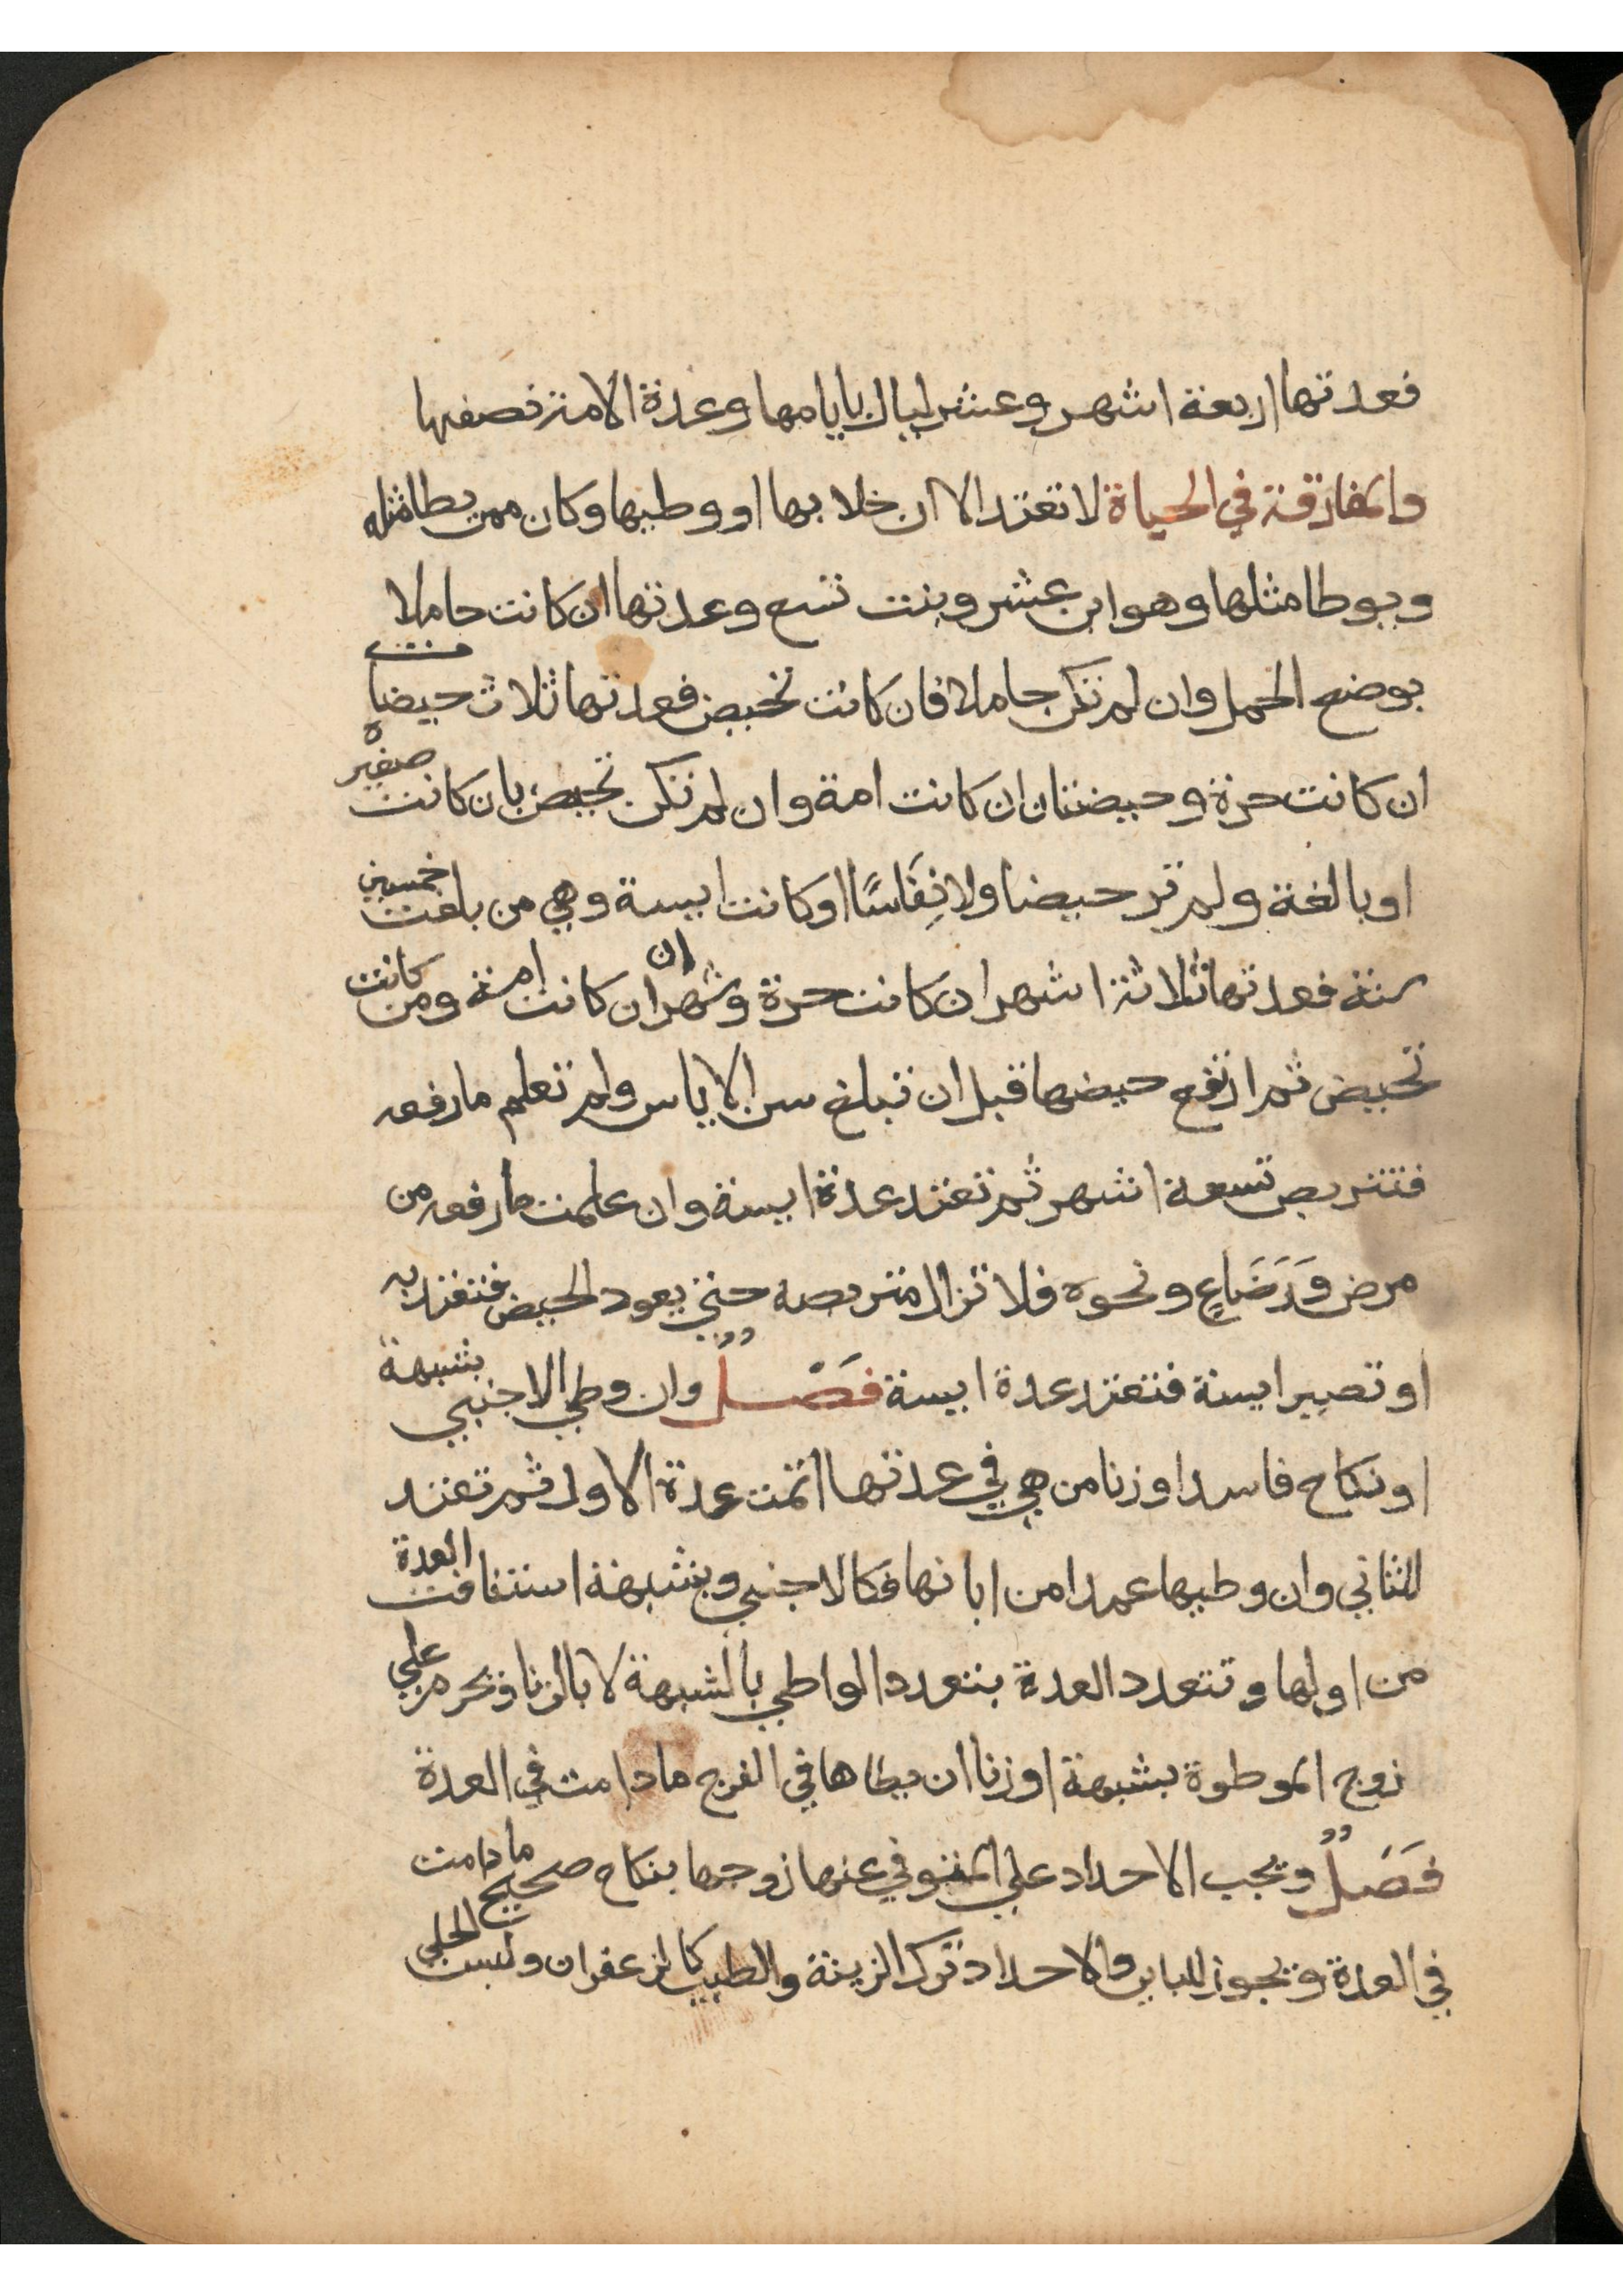 فعدتها اربعة اشهر وعشر ليال بايامها وعدة الامة نصفها
والمفارقة في الحياة لا تعتد الا ان خلا بها او وطيها وكان ممن يطا مثله
ويوطا مثلها وهو ابن عشر وبنت تسع وعدتها ان كانت حاملا
بوضع الحمل وان لم تكن حاملا فان كانت تحيض فعدتها ثلاث حيضات
ان كانت حرة وحيضتان ان كانت امة وان لم تكن تحيض بان كانت صغيرة
او بالغة ولم تر حيضا ولا نِفَاسًا او كانت ايسة وهي من بلغت خمسين
سنة فعدتها ثلاثة اشهر ان كانت حرة وشهران ان كانت امة ومن كانت
تحيض ثم ارتفع حيضها قبل ان تبلغ سن الاياس ولم تعلم ما رفعه
فتتربص تسعة اشهر ثم تعتد عدة ايسة وان علمت ما رفعه من
مرض وَرَضَاعٍ ونحوه فلا تزال متربصه حتى يعود الحيض فتعتد به
او تصير ايسة فتعتد عدة ايسة فَصْلٌ وان وطي الاجنبي بشبهة
او نكاح فاسد او زنا من هي في عدتها اتمت عدة الاول ثم تعتد
للثاني وان وطيها عمدا من ابانها فكالاجنبي وبشبهة استنافت العدة
من اولها وتتعدد العدة بتعدد الواطي بالشبهة لا بالزنا ويحرم علي
زوج الموطوة بشبهة او زنا ان يطاها في الفرج ما دامت في العدة
فَصْلٌ ويجب الاحداد علي المتوفي عنها زوجها بنكاح صحيح ما دامت
في العدة ويجوز للباين والاحداد ترك الزينة والطيب كالزعفران ولبس الحلي